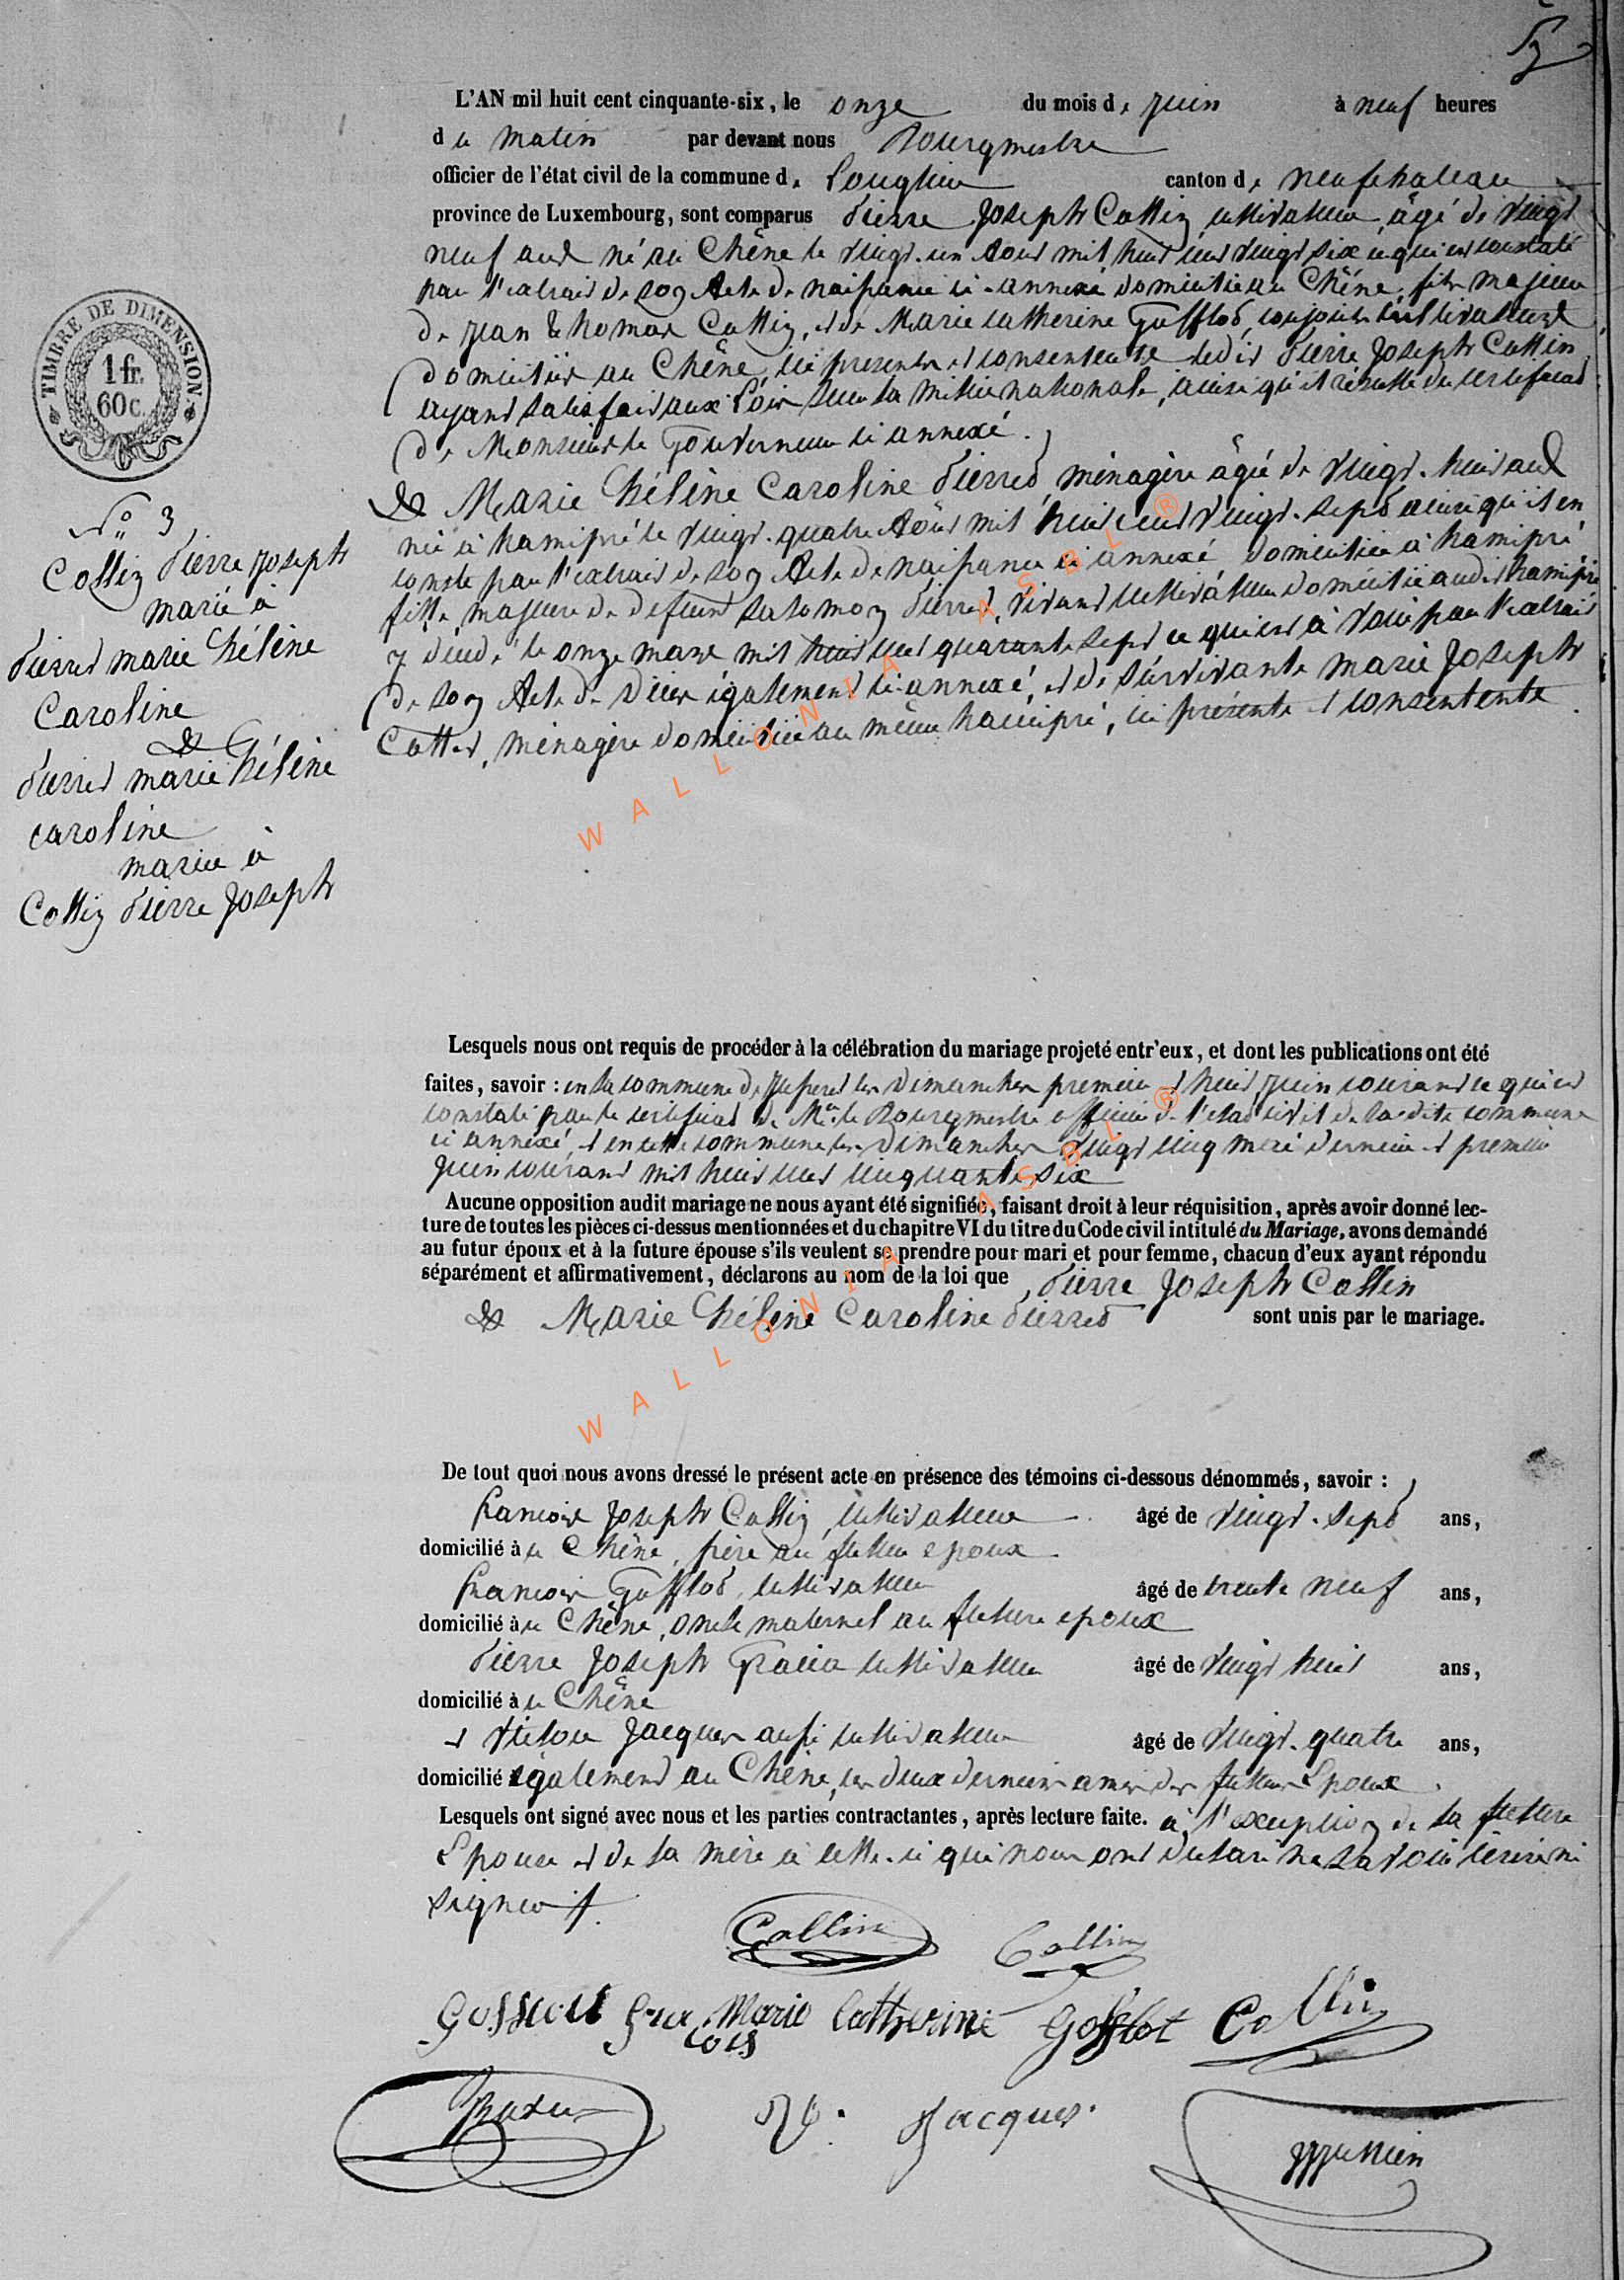 L'AN mil huit cent cinquante-six, le onze du mois de juin à neuf heures
du matin par devant nous Bourgmestre
officier de l'état civil de la commune de Longlier canton de neufchateau
province de Luxembourg, sont comparus Pierre Joseph Collin cultivateur, âgé de vingt
neuf ans né au Chêne le vingt-un Aout mil huit cent vingt six ce qui est constaté
par l'extrait de son Acte de naissance ci-annexé domicilié au Chêne, fils majeur
de jean thomas Collin, et de Marie catherine Gofflot, conjoints cultivateurs
domiciliés au Chêne, ici presents et consentants ledit Pierre Joseph Collin
ayant satisfait aux Lois sur la milice nationale, ainsi qu'il résulte du certificat
de Monsieur le Gouverneur ci annexé.
& Marie Hélène Caroline Pierret, ménagère âgée de vingt-huit ans
née à hamipré le vingt-quatre Août mil huit cent vingt-sept ainsi qu'il en
conste par l'extrait de son Acte de naissance ci annexé, domiciliée à hamipré
fille majeure de defunt Salomon Pierret, vivant cultivateur domicilié audit hamipré
y décédé le onze mars mil huit cent quarante sept ce qui est à voir par l'extrait
de son Acte de décès également ci-annexé, et de survivante marie Joseph
Collet, ménagère domiciliée au même hamipré, ici présente et consentente.
TIMBRE DE DIMENSION
1 fr.
60 c.
N° 3
Collin Pierre Joseph
marié à
Pierret marie Hélène
Caroline
&
Pierret marie Hélène
caroline
mariée à
Collin Pierre Joseph
Lesquels nous ont requis de procéder à la célébration du mariage projeté entr'eux, et dont les publications ont été
faites, savoir : en la commune de les Dimanches premier et huit juin courant ce qui est
constaté par le certificat de Mr. le Bourgmestre officier de l'etat civil de la dite commune
ci annexé, et en cette commune les Dimanches vingt cinq mai dernier et premier
juin courant mil huit cent cinquante six
Aucune opposition audit mariage ne nous ayant été signifiée, faisant droit à leur réquisition, après avoir donné lec-
ture de toutes les pièces ci-dessus mentionnées et du chapitre VI du titre du Code civil intitulé du Mariage, avons demandé
au futur époux et à la future épouse s'ils veulent se prendre pour mari et pour femme, chacun d'eux ayant répondu
séparément et affirmativement, déclarons au nom de la loi que Pierre Joseph Collin
& Marie Hélène Caroline Pierret sont unis par le mariage.
De tout quoi nous avons dressé le présent acte en présence des témoins ci-dessous dénommés, savoir :
francois Joseph Collin, cultivateur âgé de vingt-sept ans,
domicilié à u Chêne, frère au futur epoux
francois Gofflot, cultivateur âgé de trente neuf ans,
domicilié à u Chêne, oncle maternel au future epoux
Pierre Joseph cultivateur âgé de vingt huit ans,
domicilié à u Chêne
et victor Jacques aussi cultivateur âgé de vingt-quatre ans,
domicilié également au Chêne, les deux derniers amis des futurs Epoux.
Lesquels ont signé avec nous et les parties contractantes, après lecture faite. à l'exception de la future
Epouse et de la mère à celle-ci qui nous ont declaré ne savoir écrire ni
signer
Collin Collin
Marie Catherine Gofflot Collin
Jacques
WALLONIA ASBL ®
WALLONIA ASBL ®